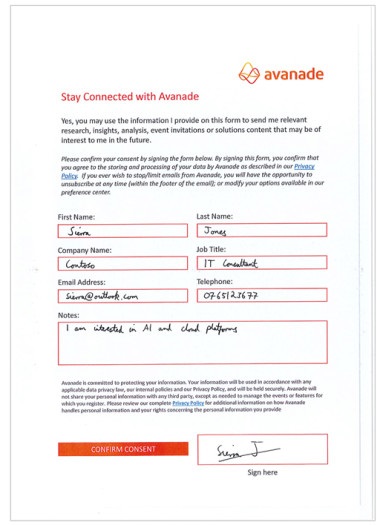 avanade
Stay Connected with Avanade
Yes, you may use the information I provide on this form to send me relevant
research, insights, analysis, event invitations or solutions content that may be of
interest to me in the future.
Please confirm your consent by signing the form below. By signing this form, you confirm that
you agree to the storing and processing of your data by Avanade as described in our Privacy
Policy. If you ever wish to stop/limit emails from Avanade, you will have the opportunity to
unsubscribe at any time (within the footer of the email); or modify your options available in our
preference center.
First Name:
Last Name:
Sierra
Jones
Company Name:
Job Title:
Contoso
IT Consultant
Email Address:
Telephone:
sierra@outlook.com
0765123677
Notes:
I am interested in AI and cloud platforms
Avanade is committed to protecting your information. Your information will be used in accordance with any
applicable data privacy law, our internal policies and our Privacy Policy, and will be held securely. Avanade will
not share your personal information with any third party, except as needed to manage the events or features for
which you register. Please review our complete Privacy Policy for additional information on how Avanade
handles personal information and your rights concerning the personal information you provide
CONFIRM CONSENT
Sierra J
Sign here